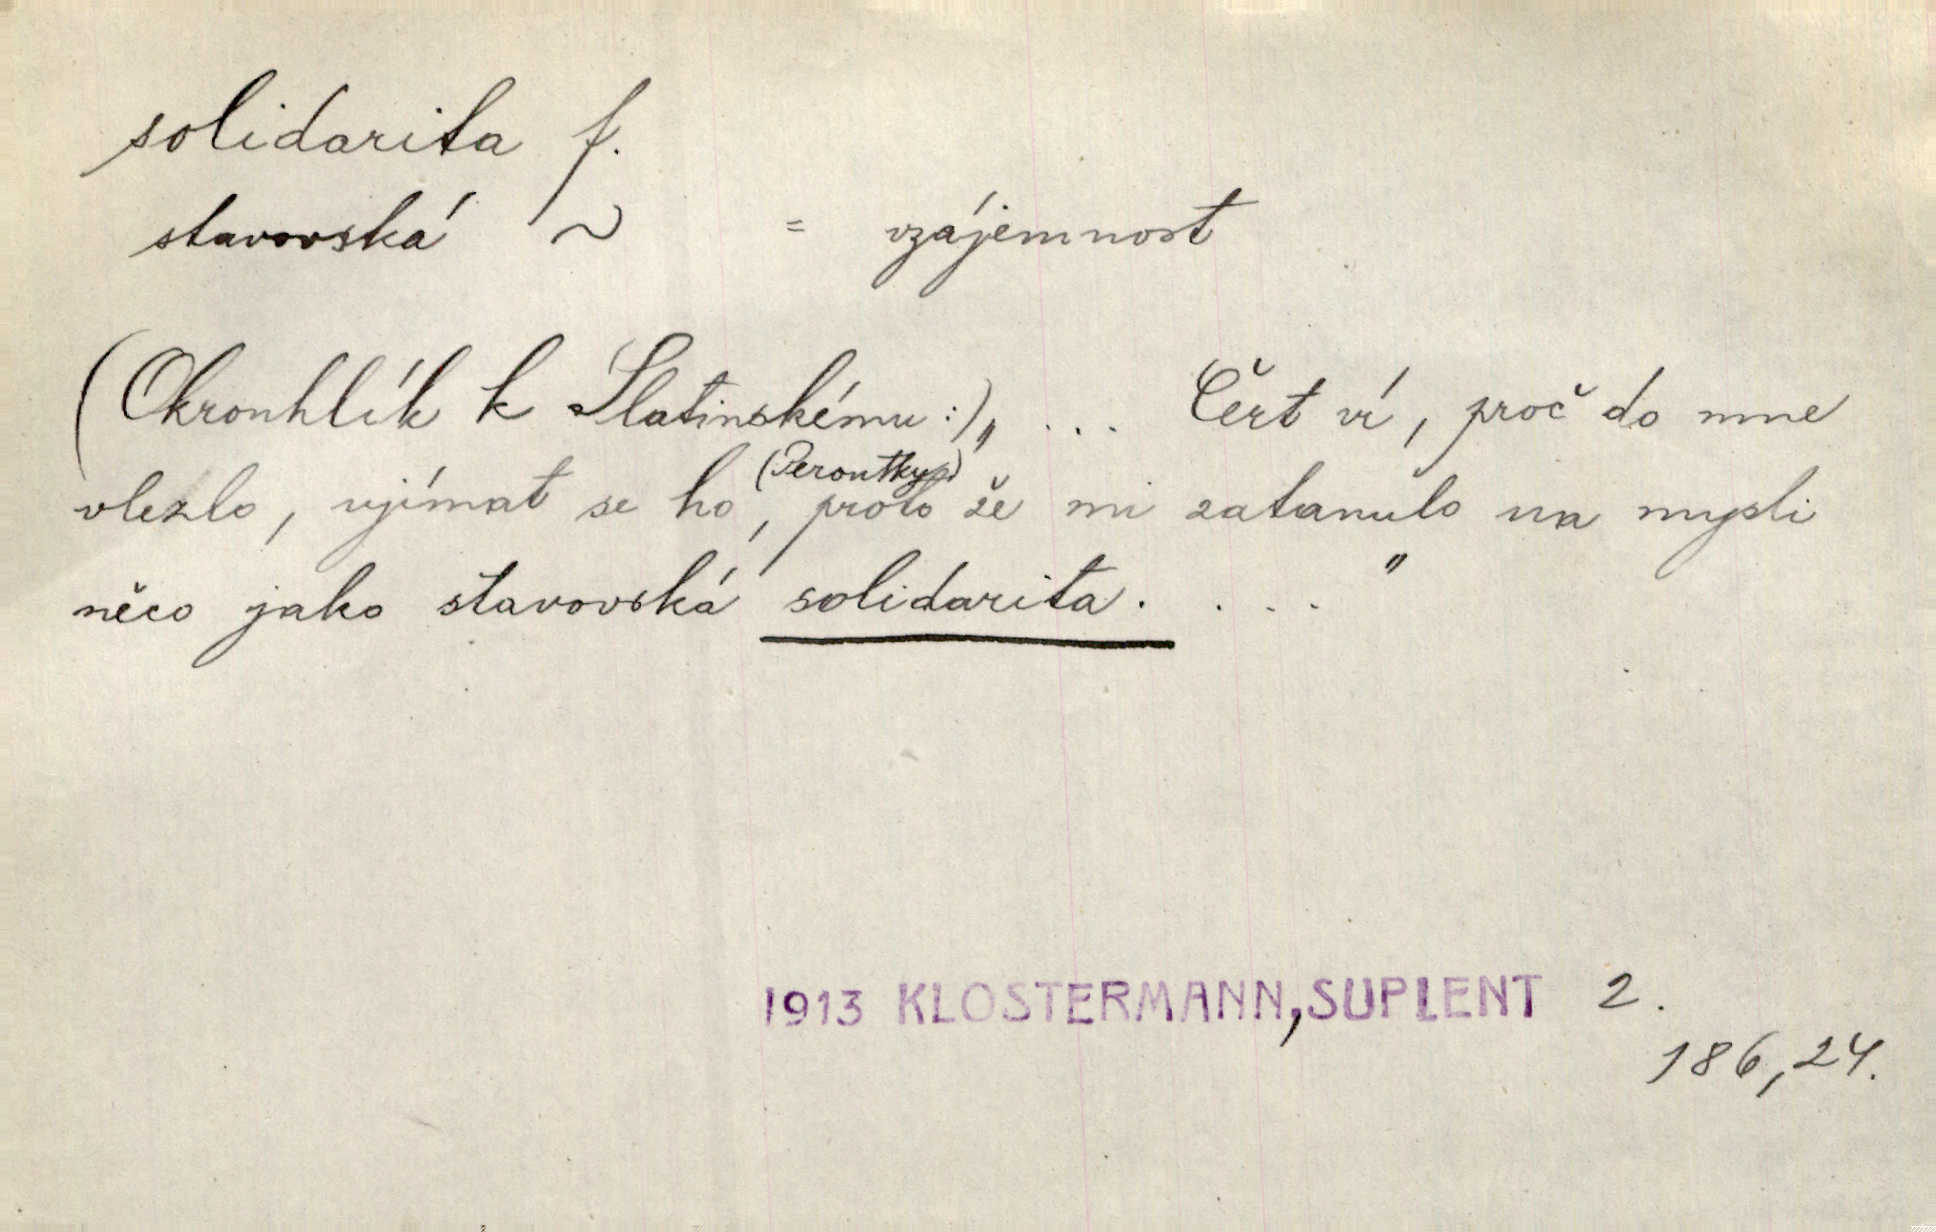 solidarita f.
stavovská ~ = vzájemnost
(Okrouhlík k Slatinskému:) „ ... Čert ví, proč do mne
vlezlo, ujímat se ho (Peroutky), proto že mi zatanulo na mysli
něco jako stavovská solidarita. . . . "
1913 KLOSTERMANN, SUPLENT 2.
186,24.